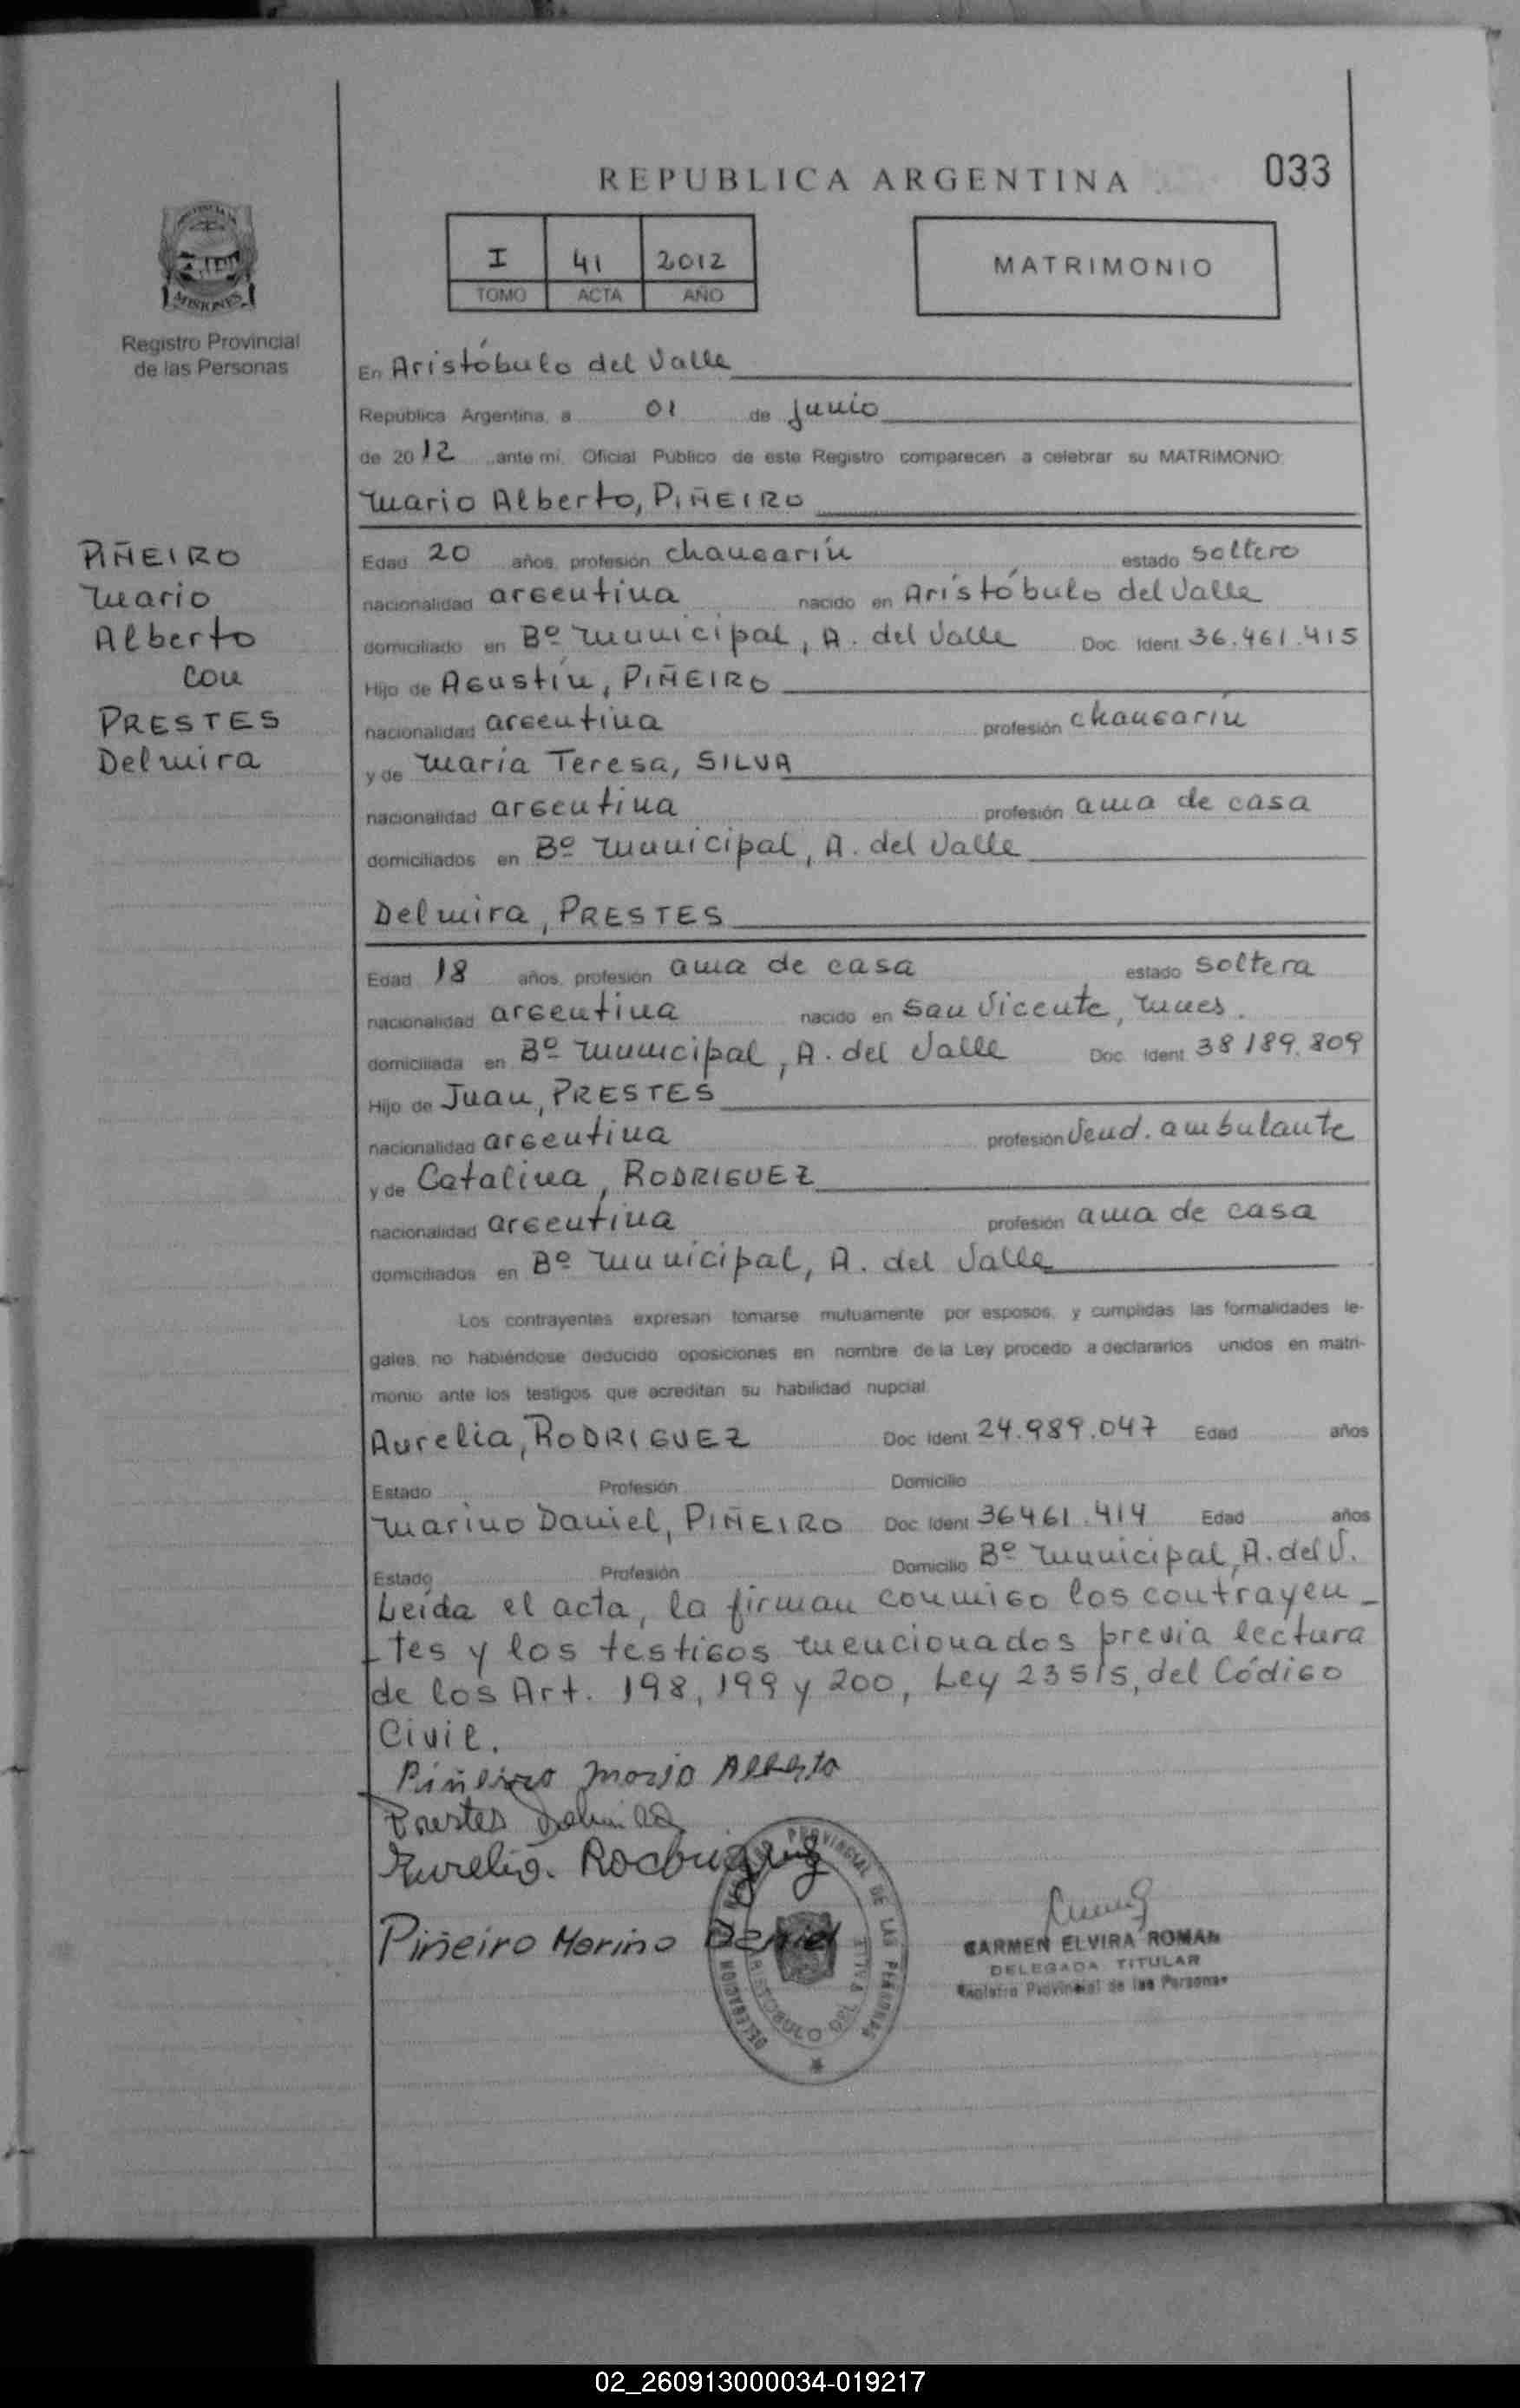 REPUBLICA ARGENTINA
033
I 41 2012
TOMO ACTA AÑO
MATRIMONIO
MISIONES
Registro Provincial
de las Personas
En Aristóbulo del Valle
República Argentina, a 01 de junio
de 2012 ante mí, Oficial Público de este Registro comparecen a celebrar su MATRIMONIO:
Mario Alberto, PIÑEIRO
PIÑEIRO
Mario
Alberto
con
PRESTES
Delmira
Edad 20 años, profesión changarín estado soltero
nacionalidad argentina nacido en Aristóbulo del Valle
domiciliado en Bº Municipal, A. del Valle Doc. Ident. 36.461.415
Hijo de Agustín, PIÑEIRO
nacionalidad argentina profesión changarín
y de María Teresa, SILVA
nacionalidad argentina profesión ama de casa
domiciliados en Bº Municipal, A. del Valle
Delmira, PRESTES
Edad 18 años, profesión ama de casa estado soltera
nacionalidad argentina nacido en San Vicente, Mnes.
domiciliada en Bº Municipal, A. del Valle Doc. Ident. 38189.809
Hijo de Juan, PRESTES
nacionalidad argentina profesión Vend. ambulante
y de Catalina, RODRIGUEZ
nacionalidad argentina profesión ama de casa
domiciliados en Bº Municipal, A. del Valle
Los contrayentes expresan tomarse mutuamente por esposos, y cumplidas las formalidades le-
gales, no habiéndose deducido oposiciones en nombre de la Ley procedo a declararlos unidos en matri-
monio ante los testigos que acreditan su habilidad nupcial.
Aurelia, RODRIGUEZ Doc. Ident. 24.989.047 Edad años
Estado Profesión Domicilio
Marino Daniel, PIÑEIRO Doc. Ident. 36461.414 Edad años
Estado Profesión Domicilio Bº Municipal, A. del V.
Leída el acta, la firman conmigo los contrayen-
-tes y los testigos mencionados previa lectura
de los Art. 198, 199 y 200, Ley 23515, del Código
Civil.
Piñeiro Mario Alberto
Prestes Delmira
Aurelia. Rodriguez
Piñeiro Marino Daniel
PROVINCIAL DE LAS PERSONAS
DELEGACION
ARISTOBULO DEL VALLE
CARMEN ELVIRA ROMAN
DELEGADA TITULAR
Registro Provincial de las Personas
02_260913000034-019217